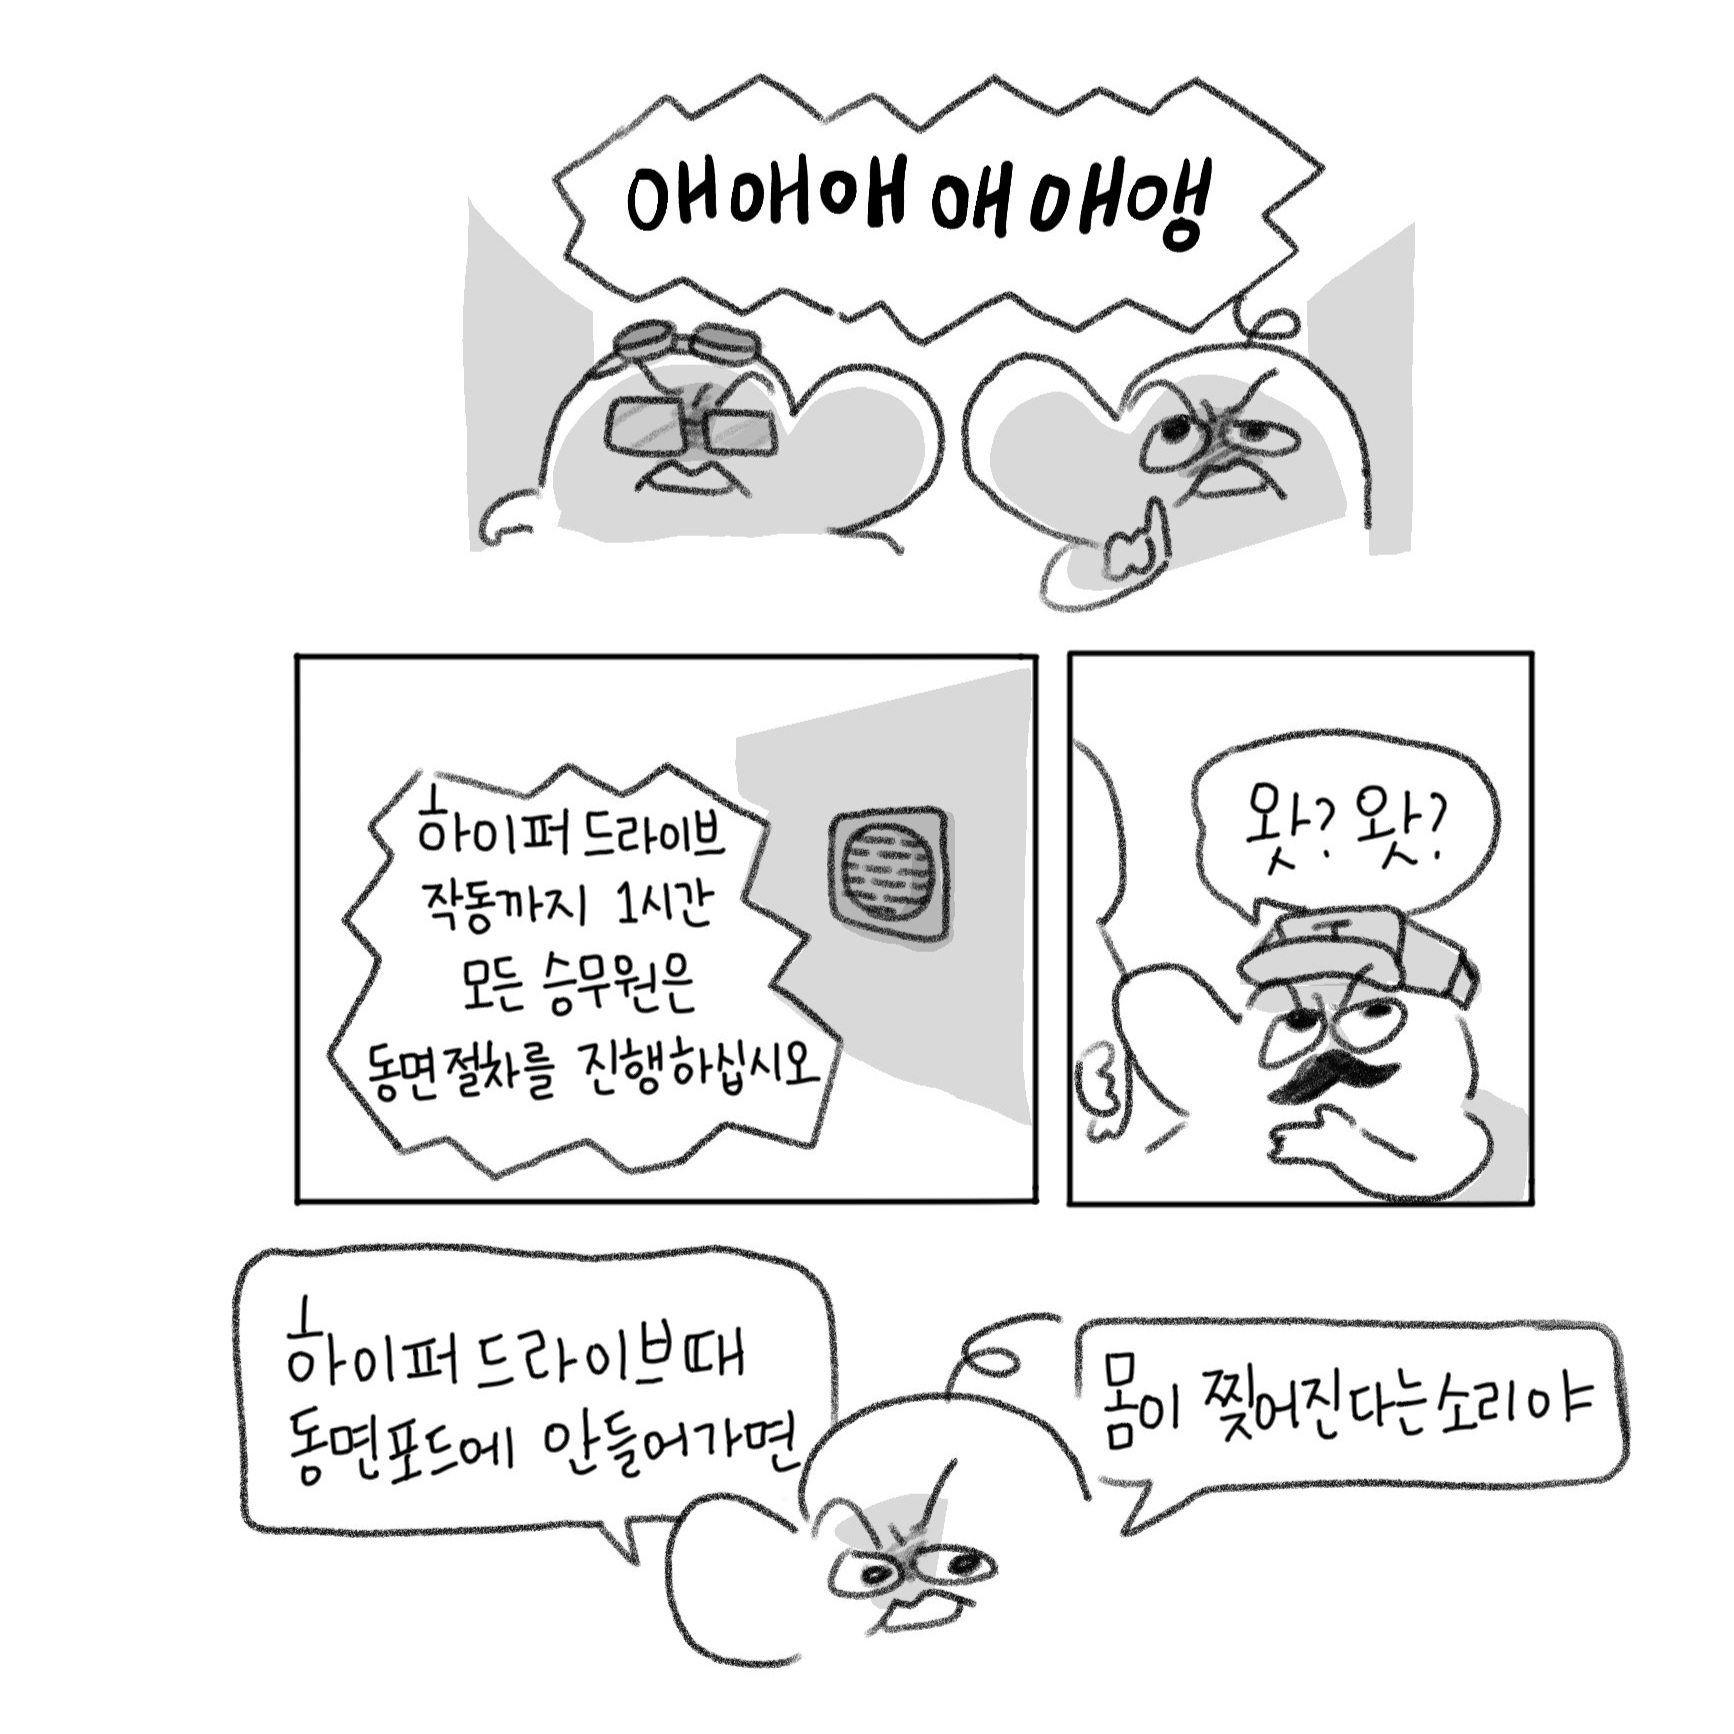 애애애애애앵
하이퍼드라이브
작동까지 1시간
모든 승무원은
동면절차를 진행하십시오
왓? 왓?
하이퍼드라이브때
동면포드에 안들어가면
몸이 찢어진다는소리야